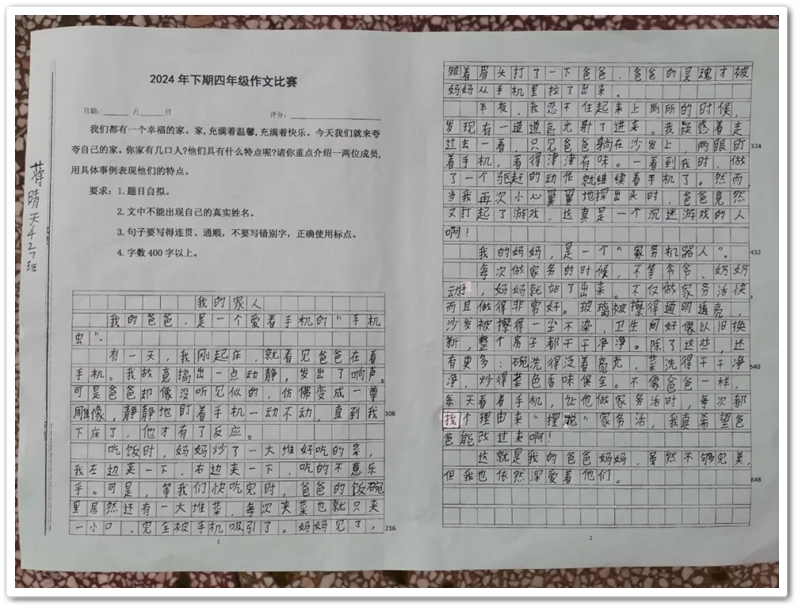 2024年下期四年级作文比赛
日期：____月____日 评分：________
我们都有一个幸福的家。家,充满着温馨,充满着快乐。今天我们就来夸
夸自己的家。你家有几口人?他们具有什么特点呢?请你重点介绍一两位成员,
用具体事例表现他们的特点。
要求：1.题目自拟。
2.文中不能出现自己的真实姓名。
3.句子要写得连贯、通顺，不要写错别字，正确使用标点。
4.字数400字以上。
晴天427班
我的家人
我的爸爸，是一个爱着手机的“手机
虫”。
有一天，我刚起床，就看见爸爸在看
手机。我故意搞出一点动静，发出了响声。
可是爸爸却像没听见似的，仿佛变成一尊
雕像，静静地盯着手机一动不动，直到我
下床了，他才有了反应。
108
吃饭时，妈妈炒了一大堆好吃的菜，
我左边夹一下，右边夹一下，吃的不意乐
乎。可是，等我们快吃完时，爸爸的饭碗
里居然还有一大堆菜，每次夹菜也就只夹
一小口，完全被手机吸引了。妈妈见了，
216
1
皱着眉头打了一下爸爸，爸爸的灵魂才被
妈妈从手机里拉了出来。
半夜，我忍不住起来上厕所的时候，
发现有一道道亮光射了进来。我疑惑着走
过去一看，只见爸爸躺在沙发上，两眼盯
324
着手机，看得津津有味。一看到我时，做
了一个驱赶的动作就继续看手机了。然而，
当我再次小心翼翼地探出头时，爸爸竟然
又打起了游戏，这真是一个沉迷游戏的人
啊！
我的妈妈，是一个“家务机器人”。
432
每次做家务的时候，不等爷爷、奶奶
动，妈妈就站了出来，不仅做家务活快，
而且做得非常好。玻璃被擦得通明透亮，
沙发被擦得一尘不染，卫生间好像以旧换
新，整个房子都干干净净。除了这些，还
有更多：碗洗得泛着亮光，菜洗得干干净
540
净，炒得菜色香味俱全。不像爸爸一样，
每天看看手机，让他做家务活时，每次都
找个理由来“摆脱”家务活，我真希望爸
爸能改过来啊！
这就是我的爸爸妈妈，虽然不够完美，
但我也依然深爱着他们。
648
2